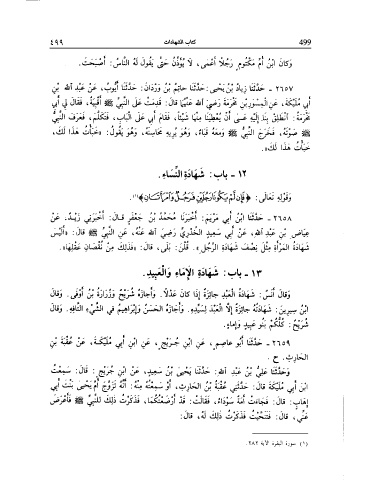 499 كتاب الشهادات ٤٩٩
وكان ابْنُ أُمِّ مَكْتُومٍ رَجُلًا أَعْمَى، لَا يُؤَذِّنُ حَتَّى يَقُولَ لَهُ النَّاسُ: أَصْبَحْتَ.
٢٦٥٧ - حَدَّثَنَا زِيَادُ بْنُ يَحْيَى: حَدَّثَنَا حَاتِمُ بْنُ وَرْدَانَ: حَدَّثَنَا أَيُّوبُ، عَنْ عَبْدِ اللهِ بْنِ
أَبِي مُلَيْكَةَ، عَنِ الْمِسْوَرِ بْنِ مَخْرَمَةَ رَضِيَ اللهُ عَنْهُمَا قَالَ: قَدِمَتْ عَلَى النَّبِيِّ ﷺ أَقْبِيَةٌ، فَقَالَ لِي أَبِي
مَخْرَمَةُ: انْطَلِقْ بِنَا إِلَيْهِ عَسَى أَنْ يُعْطِيَنَا مِنْهَا شَيْئًا، فَقَامَ أَبِي عَلَى الْبَابِ، فَتَكَلَّمَ، فَعَرَفَ النَّبِيُّ
ﷺ صَوْتَهُ، فَخَرَجَ النَّبِيُّ ﷺ وَمَعَهُ قَبَاءٌ، وَهُوَ يُرِيهِ مَحَاسِنَهُ، وَهُوَ يَقُولُ: «خَبَأْتُ هَذَا لَكَ،
خَبَأْتُ هَذَا لَكَ».
١٢ - باب: شَهَادَةِ النِّسَاءِ.
وَقَوْلِهِ تَعَالَى: ﴿فَإِن لَّمْ يَكُونَا رَجُلَيْنِ فَرَجُلٌ وَامْرَأَتَانِ﴾(١)
٢٦٥٨ - حَدَّثَنَا ابْنُ أَبِي مَرْيَمَ: أَخْبَرَنَا مُحَمَّدُ بْنُ جَعْفَرٍ قَالَ: أَخْبَرَنِي زَيْدٌ، عَنْ
عِيَاضِ بْنِ عَبْدِ اللهِ، عَنْ أَبِي سَعِيدٍ الْخُدْرِيِّ رَضِيَ اللهُ عَنْهُ، عَنِ النَّبِيِّ ﷺ قَالَ: «أَلَيْسَ
شَهَادَةُ الْمَرْأَةِ مِثْلَ نِصْفِ شَهَادَةِ الرَّجُلِ». قُلْنَ: بَلَى، قَالَ: «فَذَلِكَ مِنْ نُقْصَانِ عَقْلِهَا».
١٣ - باب: شَهَادَةِ الْإِمَاءِ وَالْعَبِيدِ.
وَقَالَ أَنَسٌ: شَهَادَةُ الْعَبْدِ جَائِزَةٌ إِذَا كَانَ عَدْلًا. وَأَجَازَهُ شُرَيْحٌ وَزُرَارَةُ بْنُ أَوْفَى. وَقَالَ
ابْنُ سِيرِينَ: شَهَادَتُهُ جَائِزَةٌ إِلَّا الْعَبْدَ لِسَيِّدِهِ. وَأَجَازَهُ الْحَسَنُ وَإِبْرَاهِيمُ فِي الشَّيْءِ التَّافِهِ. وَقَالَ
شُرَيْحٌ: كُلُّكُمْ بَنُو عَبِيدٍ وَإِمَاءٍ.
٢٦٥٩ - حَدَّثَنَا أَبُو عَاصِمٍ، عَنِ ابْنِ جُرَيْجٍ، عَنِ ابْنِ أَبِي مُلَيْكَةَ، عَنْ عُقْبَةَ بْنِ
الحَارِثِ. ح.
وَحَدَّثَنَا عَلِيُّ بْنُ عَبْدِ اللهِ: حَدَّثَنَا يَحْيَى بْنُ سَعِيدٍ، عَنِ ابْنِ جُرَيْجٍ: قَالَ: سَمِعْتُ
ابْنَ أَبِي مُلَيْكَةَ قَالَ: حَدَّثَنِي عُقْبَةُ بْنُ الْحَارِثِ، أَوْ سَمِعْتُهُ مِنْهُ: أَنَّهُ تَزَوَّجَ أُمَّ يَحْيَى بِنْتَ أَبِي
إِهَابٍ: قَالَ: فَجَاءَتْ أَمَةٌ سَوْدَاءُ، فَقَالَتْ: قَدْ أَرْضَعْتُكُمَا، فَذَكَرْتُ ذَلِكَ لِلنَّبِيِّ ﷺ فَأَعْرَضَ
عَنِّي، قَالَ: فَتَنَحَّيْتُ فَذَكَرْتُ ذَلِكَ لَهُ، قَالَ:
(١) سورة البقرة الآية ٢٨٢.